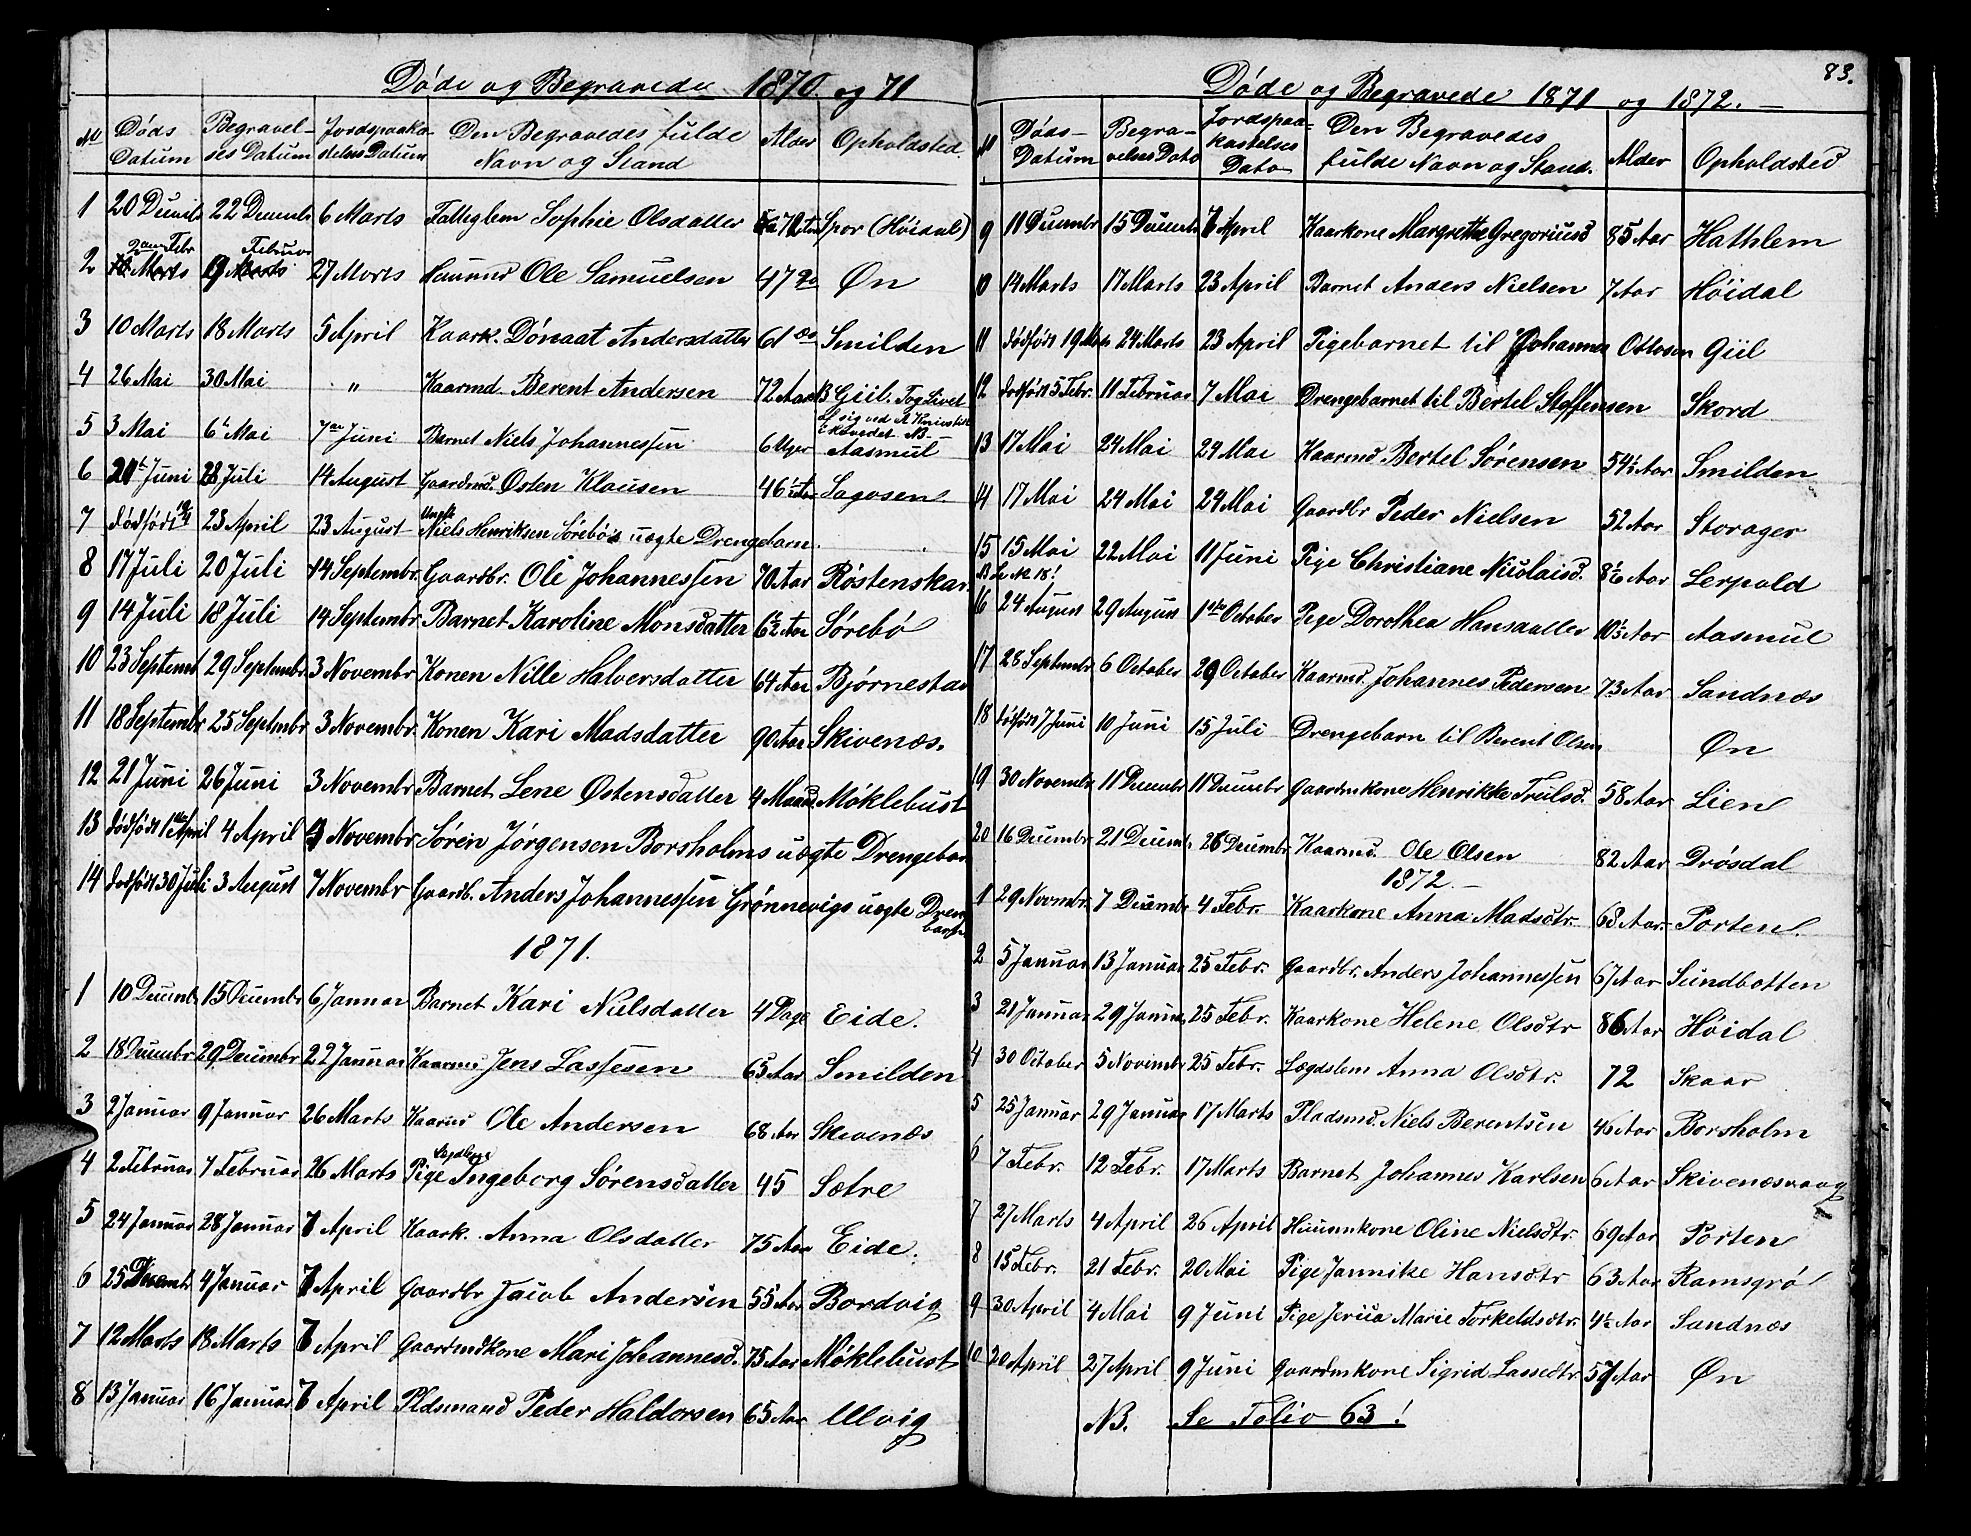 Døde og Begravede 1870 og 71
No Døds Datum Begravel-ses Datum Jordspaaka-stelses Datum Den Begravedes fulde Navn og Stand Alder Opholdsted
1 20 Decmb 22 Decembr 6 Marts Fattiglem Sophie Olsdatter 70 Aar Spor (Høidal)
2 Febr Februar 27 Marts Huusmd Ole Samuelsen 47 do Øn
3 10 Marts 18 Marts 5 April Kaark. Dónaat Andersdatter 61 do Smilden
4 26 Mai 30 Mai " Kaarmd. Berent Andersen 72 Aar Giil. Tog Livet af sig ved
5 3 Mai 6t Mai 7de Juni Barnet Niels Johannessen 6 Uger Aasmul
6 Juni 28 Juli 14 August Gaardmd. Osten Klausen 46½ Aar Sagosen
7 dødfødt 23 April 23 August Niels Henriksen Sørebø's uægte Drengebarn
8 17 Juli 20 Juli 14 Septembr. Gaardbr. Ole Johannessen 70 Aar Røstenskar
9 14 Juli 18 Juli 14 Septembr. Barnet Karoline Monsdatter 6½ Aar Sørebø
10 23 Septemt 29 Septembr 3 Novembr Konen Nille Halversdatter 64 Aar Bjørnestad
11 18 Septembr 25 Septmbr 3 Novembr. Konen Kari Madsdatter 90 Aar Skivenæs.
12 21 Juni 26 Juni 3 Novembr Barnet Lene Østensdatter 4 Maand Møklebust
13 dødfødt 1ste April 4 April 4 Novembr Sören Jørgensen Borsholms uægte Drengebar
14 dødfødt 30 Juli 3 August 7 Novembr Gaardb. Anders Johannessen Grönnevigs uægte Drengbarn
1871.
1 10 Decmb 15 Decembr 6 Januar Barnet Kari Nielsdatter 4 Dage Eide.
2 18 Decembr 29 Decembr 22 Januar Kaarmd Jens Lassesen 65 Aar Smilden
3 2 Januar 9 Januar 26 Marts Kaarmd Ole Andersen 68 Aar Skivenæs
4 2 Februar 7 Februar 26 Marts Pige Ingeborg Sörensdatter 45 Sætre
5 24 Januar 28 Januar 7 April Kaark. Anna Olsdatter 75 Aar Eide.
6 25 Decemb. 4 Januar 7 April Gaardbr Jacob Andersen 55 Aar Bordvig
7 12 Marts 18 Marts 7 April Gaardmdkone Mari Johannesd. 75 Aar Møklebust
8 13 Januar 16 Januar 7 April Pldsmand Peder Haldorsen 65 Aar Ulvig
83.
Døde og Begravede 1871 og 1872.
No Døds-Datum Begra-velses Dato Jordspaa-kastelses Dato Den Begravedes fulde Navn og Stand. Alder Opholdsted
9 11 Decembr 15 Decemb 7 April Kaarkone Margrethe Gregoriusd 85 Aar Hathlem
10 14 Marts 17 Marts 23 April Barnet Anders Nielsen 7 Aar Høidal
11 dødfødt 19 Marts 24 Marts 23 April Pigebarnet til Johannes Ottosen Giil
12 dødfödt 5 Febr. 11 Februar 7 Mai Drengebarnet til Bertel Steffensen Skord
13 17 Mai 24 Mai 24 Mai Kaarmd. Bertel Sörensen 54½ Aar Smilden
14 17 Mai 24 Mai 24 Mai Gaardbr Peder Nielsen 52 Aar Storager
15 15 Mai 22 Mai 11 Juni Pige Christiane Nicolaisd. Aar Lerpold
Se No 18!
16 24 August 29 August 1ste October Pige Dorothea Hansdatter Aar Aasmul
17 28 Septembr 6 October 29 October Kaarmd. Johannes Pedersen 73 Aar Sandnæs
18 dødfødt 7 Juni 10 Juni 15 Juli Drengebarn til Berent Olsen Øn
19 30 Novembr 11 Decmbr 11 Decembr Gaardmkone Henrikke Trulsd. 58 Aar Lien
20 16 Decembr 21 Decemb 26 Decembr Kaarmd. Ole Olsen 82 Aar Drösdal
1872.
1 29 Novmbr. 7 Decembr 4 Febr. Kaarkone Anna Madsdtr. 68 Aar Porten
2 5 Januar 13 Januar 25 Febr. Gaardbr. Anders Johannessen 67 Aar Sundbotten
3 21 Januar 29 Januar 25 Febr. Kaarkone Helene Olsdtr 86 Aar Høidal
4 30 October 5 Novembr 25 Febr. Lægdslem Anna Olsdtr. 72 Skaar
5 25 Januar 29 Januar 17 Marts Pladsmd. Niels Berentsen 46 Aar Borsholm
6 7 Febr. 12 Febr. 17 Marts Barnet Johannes Karlsen 6 Aar Skivenæsvaag
7 27 Marts 4 April 26 April Huusmkone Oline Nielsdtr. 69 Aar Porten
8 15 Febr. 21 Febr. 20 Mai Pige Jannike Hansdtr 63 Aar Ramsgrø
9 30 April 4 Mai 9 Juni Pige Jerica Marie Torkeldsdtr. 4½ Aar Sandnæs
10 20 April 27 April 9 Juni Gaardmkone Sigrid Lassedtr. 57 Aar Øn
NB. Se Folio 63!